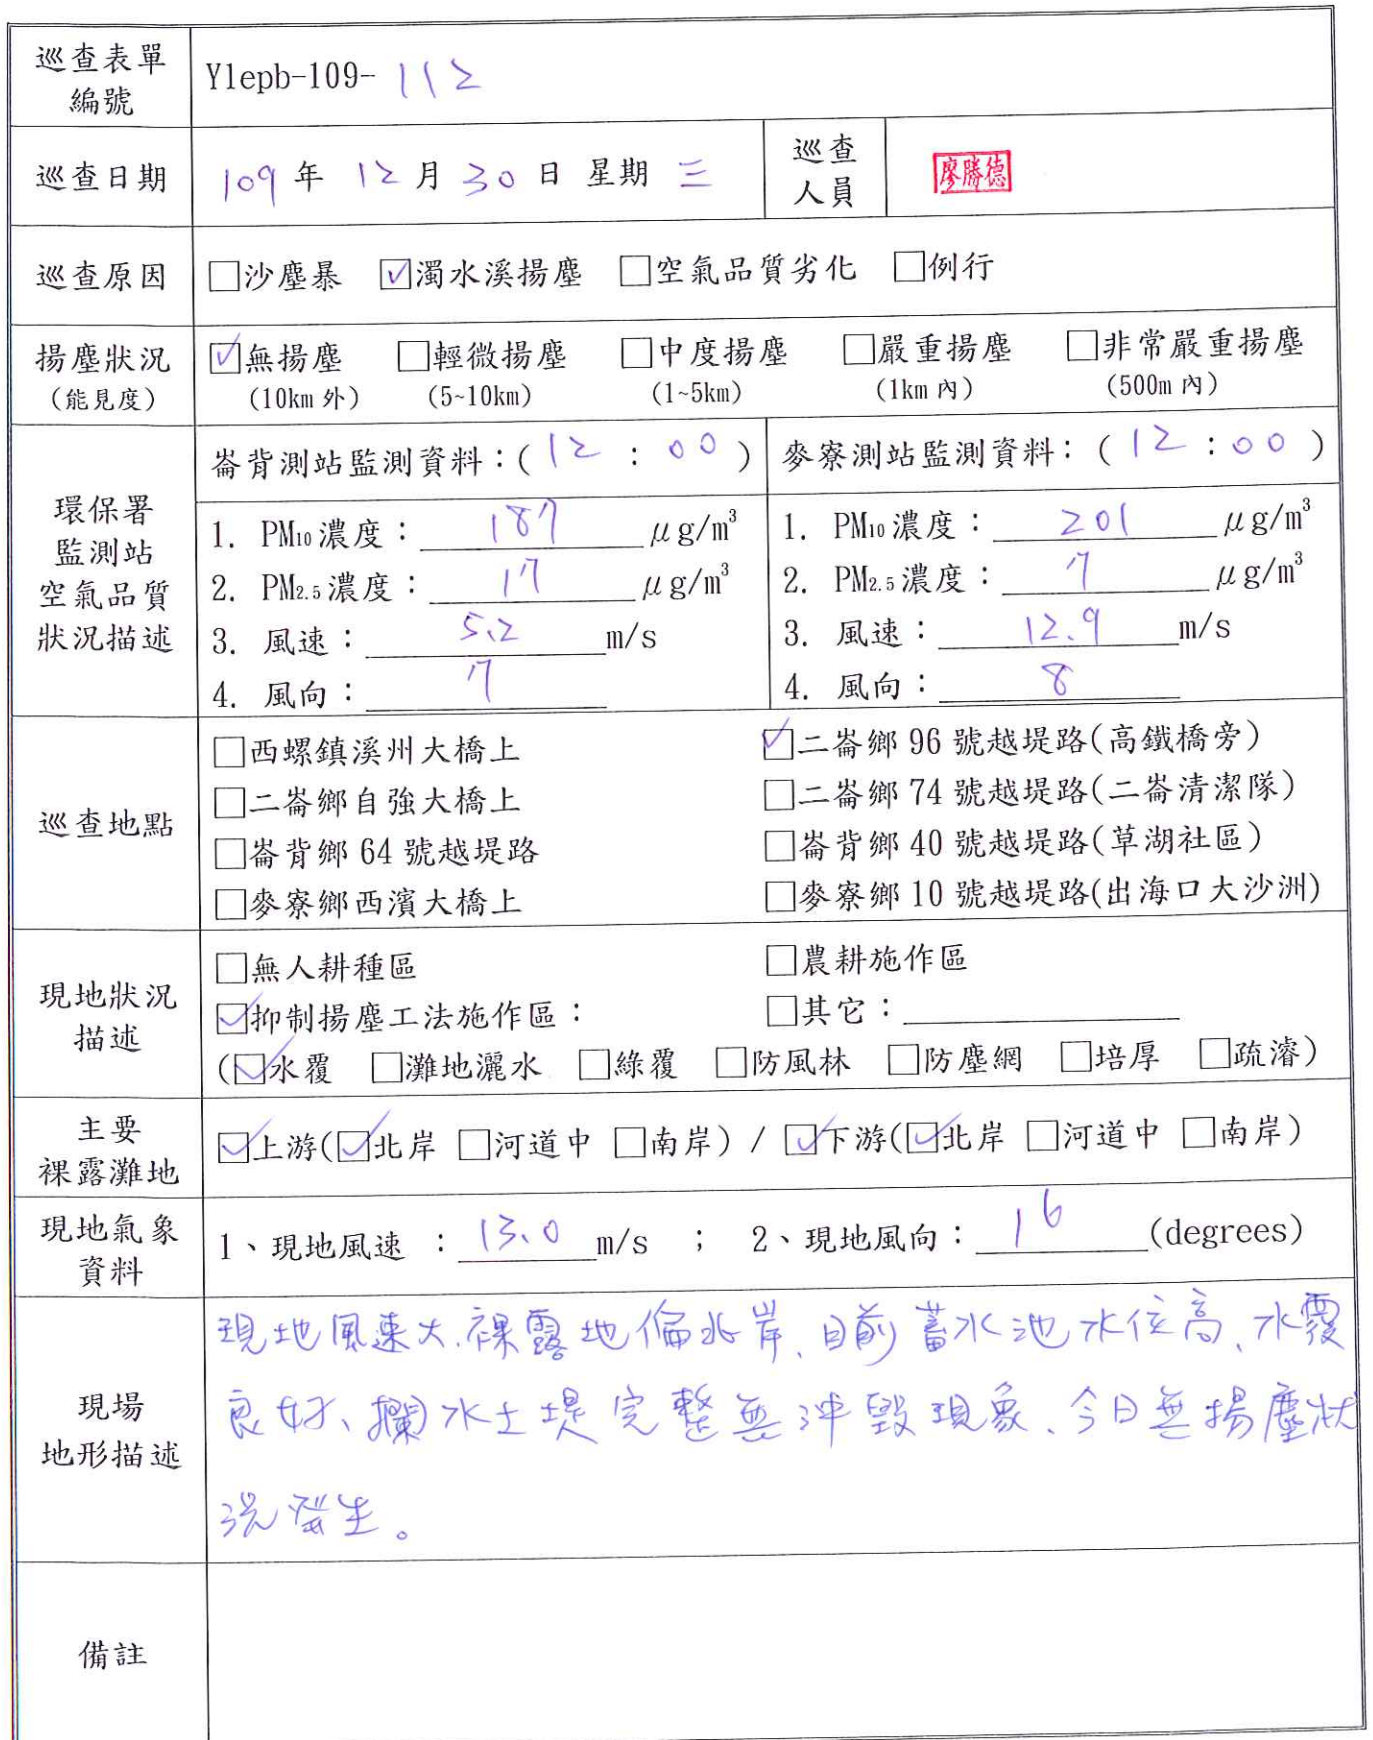 巡查表單編號 Ylepb-109-112
巡查日期 109年 12月 30日 星期 三 巡查人員 廖勝德
巡查原因 □沙塵暴 ☑濁水溪揚塵 □空氣品質劣化 □例行
揚塵狀況 ☑無揚塵 □輕微揚塵 □中度揚塵 □嚴重揚塵 □非常嚴重揚塵
(能見度) (10km 外) (5~10km) (1~5km) (1km 內) (500m 內)
環保署
監測站
空氣品質
狀況描述
崙背測站監測資料：(12：00)
1. PM10濃度：187 μg/m³
2. PM2.5濃度：17 μg/m³
3. 風速：5.2 m/s
4. 風向：7
麥寮測站監測資料：(12：00)
1. PM10濃度：201 μg/m³
2. PM2.5濃度：7 μg/m³
3. 風速：12.9 m/s
4. 風向：8
巡查地點
□西螺鎮溪州大橋上 ☑二崙鄉 96 號越堤路(高鐵橋旁)
□二崙鄉自強大橋上 □二崙鄉 74 號越堤路(二崙清潔隊)
□崙背鄉 64 號越堤路 □崙背鄉 40 號越堤路(草湖社區)
□麥寮鄉西濱大橋上 □麥寮鄉 10 號越堤路(出海口大沙洲)
現地狀況
描述
□無人耕種區 □農耕施作區
☑抑制揚塵工法施作區： □其它：
(☑水覆 □灘地灑水 □綠覆 □防風林 □防塵網 □培厚 □疏濬)
主要
裸露灘地
☑上游(☑北岸 □河道中 □南岸) / ☑下游(☑北岸 □河道中 □南岸)
現地氣象
資料
1、現地風速 ：13.0 m/s ； 2、現地風向：16 (degrees)
現場
地形描述
現地風速大、裸露地偏北岸、目前蓄水池水位高、水覆
良好、攔水土堤完整無沖毀現象、今日無揚塵狀
況發生。
備註